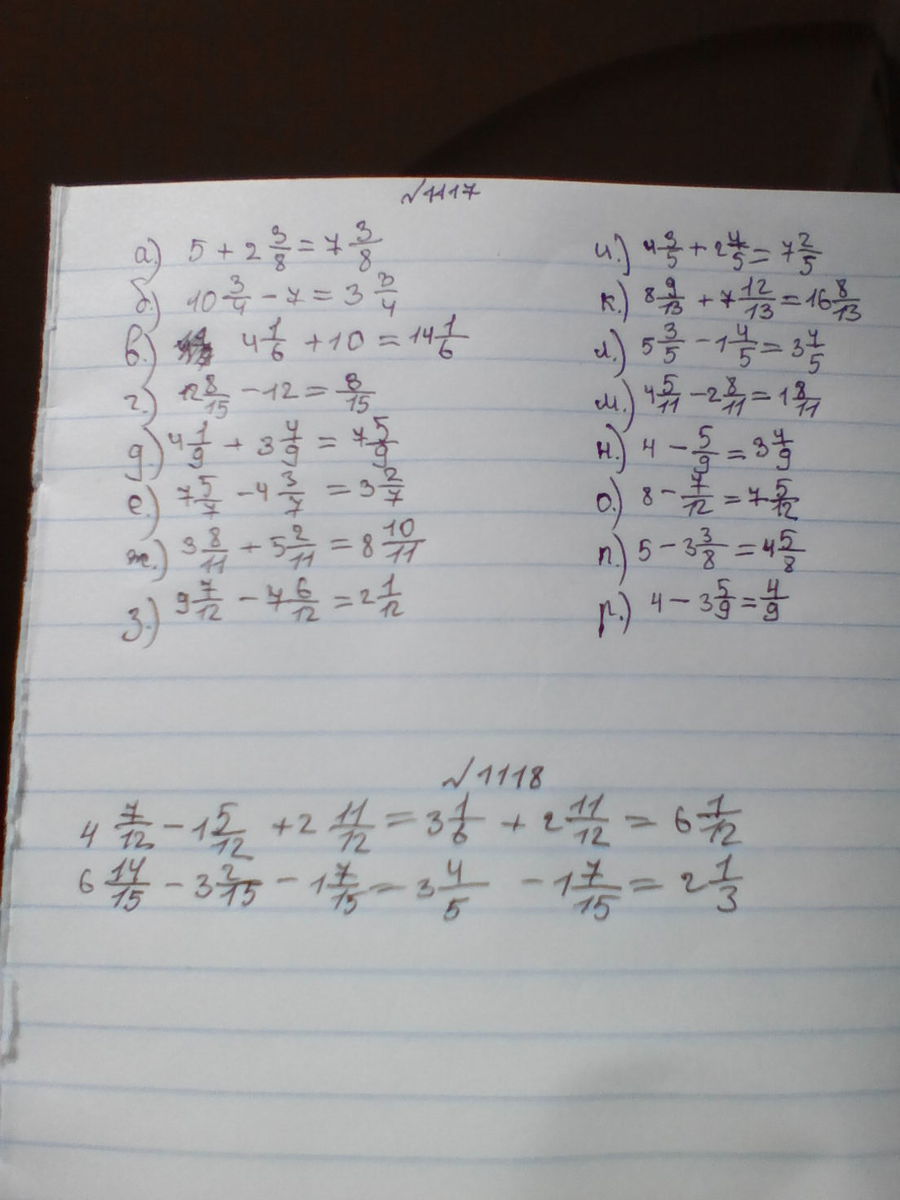 √1117
а.) 5 + 2 3/8 = 7 3/8
б.) 10 3/4 - 7 = 3 3/4
в.) 4 1/6 + 10 = 14 1/6
г.) 12 8/15 - 12 = 8/15
д.) 4 1/9 + 3 4/9 = 7 5/9
е.) 7 5/7 - 4 3/7 = 3 2/7
ж.) 3 8/11 + 5 2/11 = 8 10/11
з.) 9 7/12 - 7 6/12 = 2 1/12
и.) 4 3/5 + 2 4/5 = 7 2/5
к.) 8 9/13 + 7 12/13 = 16 8/13
л.) 5 3/5 - 1 4/5 = 3 4/5
м.) 4 5/11 - 2 8/11 = 1 8/11
н.) 4 - 5/9 = 3 4/9
о.) 8 - 7/12 = 7 5/12
п.) 5 - 3 3/8 = 4 5/8
р.) 4 - 3 5/9 = 4/9
√1118
4 7/12 - 1 5/12 + 2 11/12 = 3 1/6 + 2 11/12 = 6 1/12
6 14/15 - 3 2/15 - 1 7/15 = 3 4/5 - 1 7/15 = 2 1/3